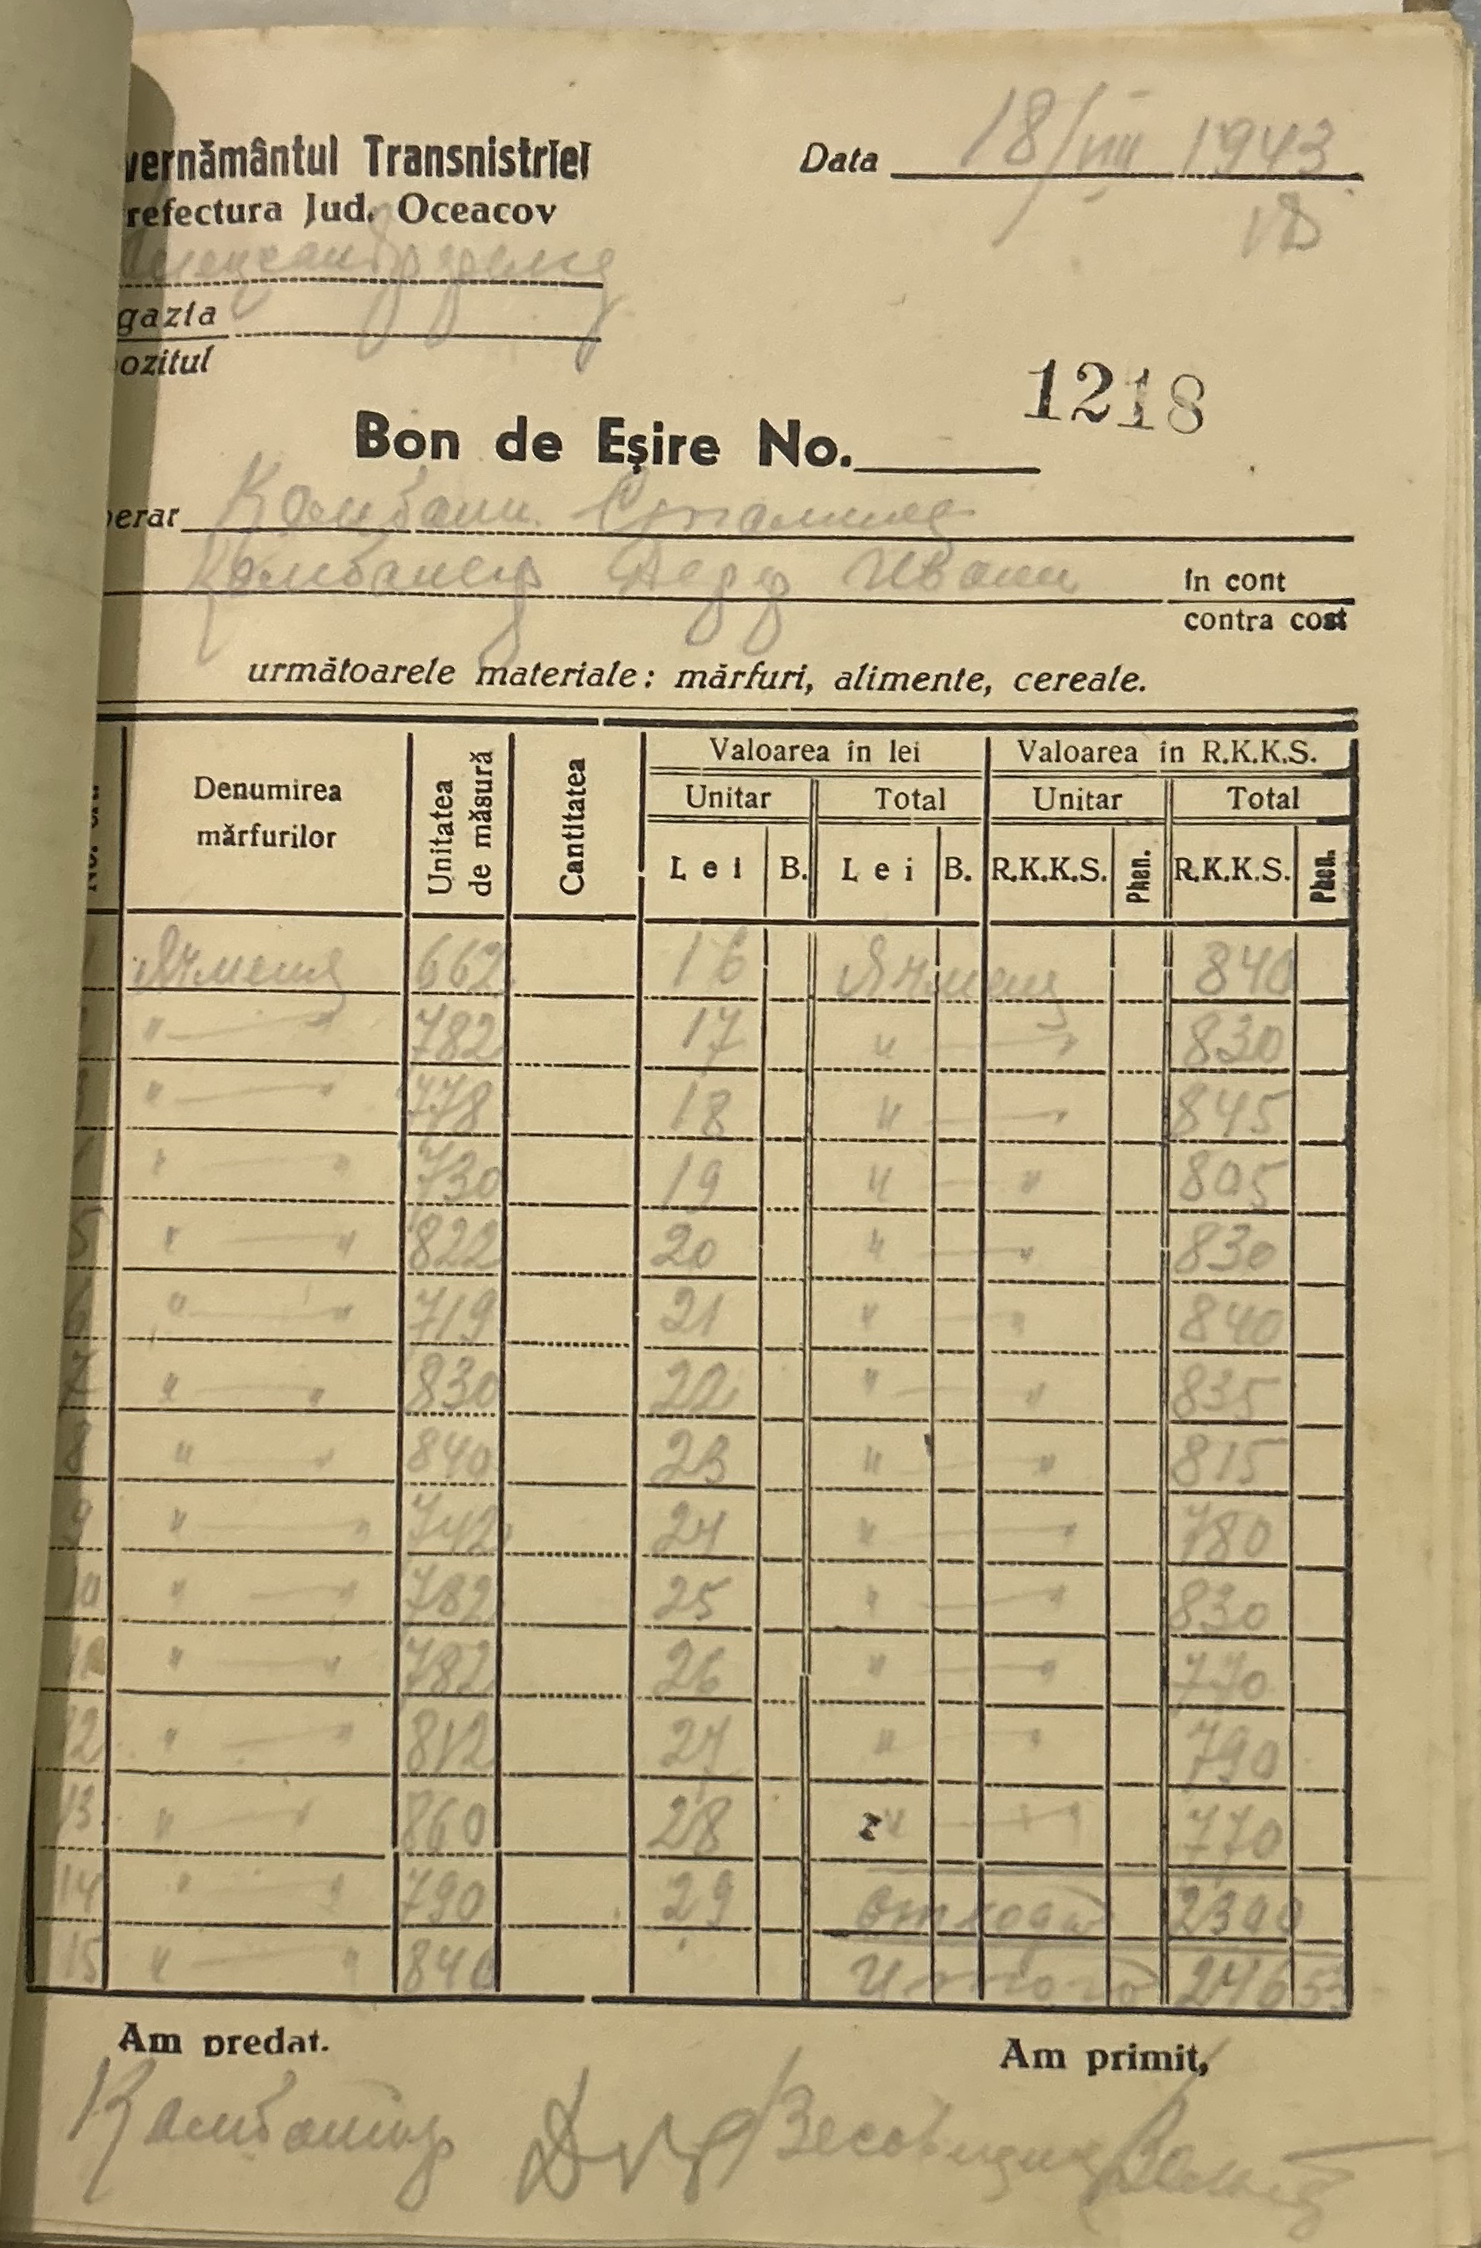 vernământul Transnistriei
Data 18/VIII 1943
refectura Jud. Oceacov
18
gazia
ozitul
1218
Bon de Eşire No.
erar Комбаин Сталинец
Комбанер Иван
în cont
contra cost
următoarele materiale: mărfuri, alimente, cereale.
Denumirea mărfurilor Unitatea de măsură Cantitatea Valoarea în lei Valoarea în R.K.K.S.
Unitar Total Unitar Total
Lei B. Lei B. R.K.K.S. Phen. R.K.K.S. Phen.
Ячмень 662 16 Ячмень 840
" — " 782 17 " — " 830
" — " 778 18 " — " 845
" — " 730 19 " — " 805
5 " — " 822 20 " — " 830
6 " — " 719 21 " — " 840
7 " — " 830 22 " — " 835
8 " — " 840 23 " — " 815
9 " — " 742 24 " — " 780
10 " — " 782 25 " — " 830
11 " — " 782 26 " — " 770
12 " — " 812 27 " — " 790
13 " — " 860 28 " — " 770
14 " — " 790 29 отхода 2300
15 " — " 840 Итого 24653
Am predat.
Am primit,
Комбайнер Весовщик